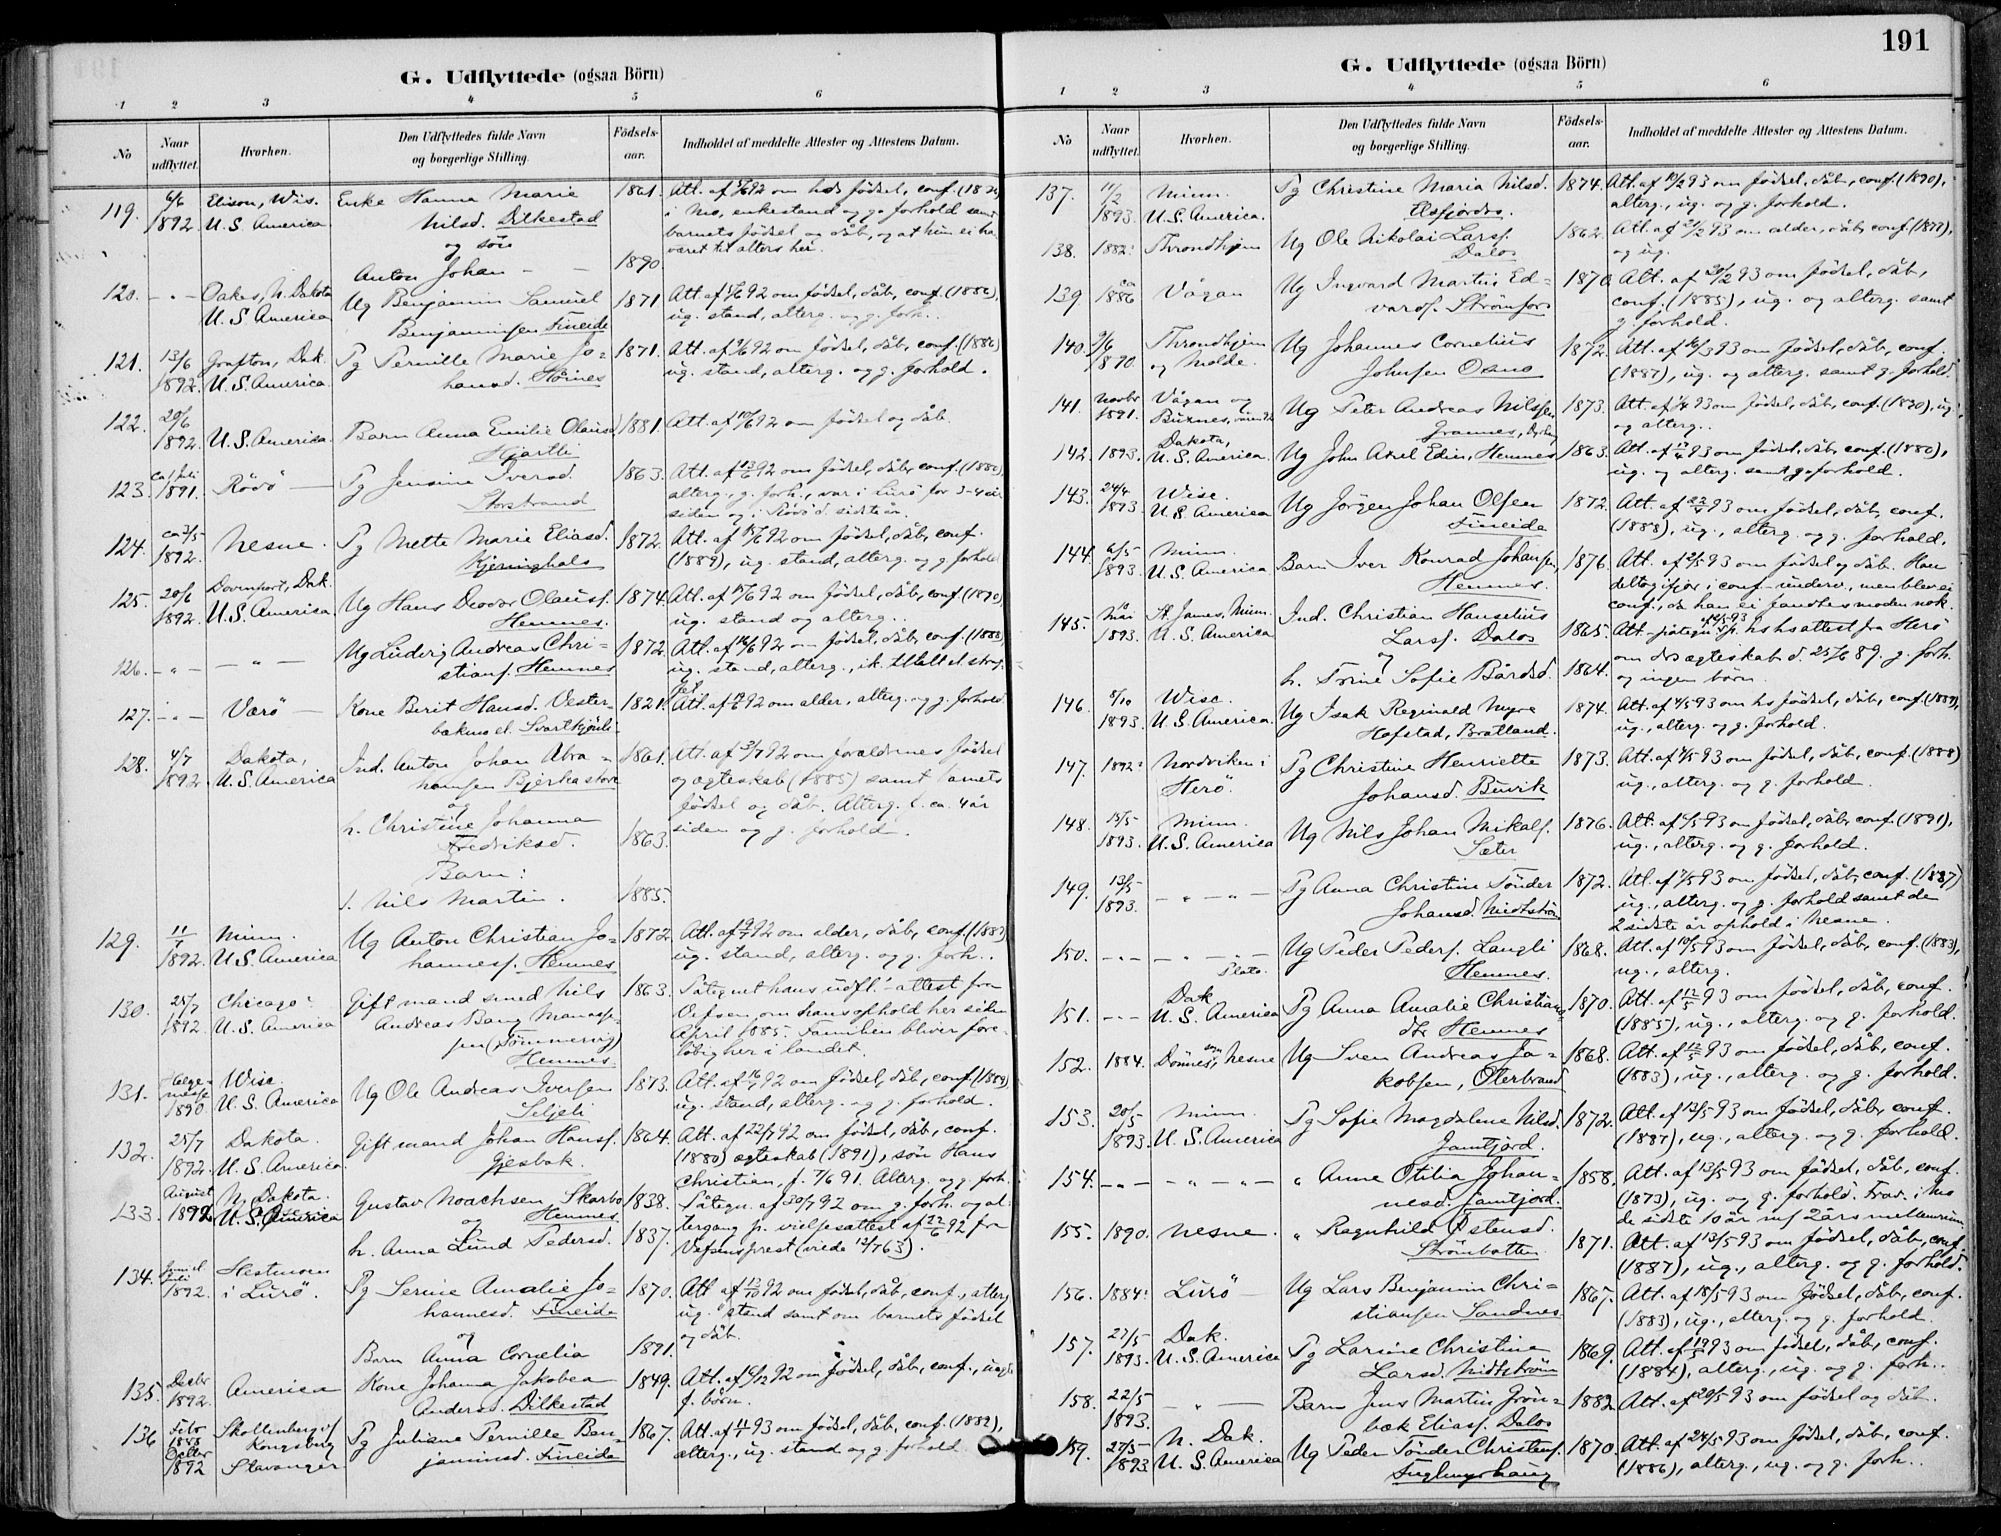 G. Udflyttede (ogsaa Börn)
1 2 3 4 5 6
No
Naar udflyttet.
Hvorhen.
Den Udflyttedes fulde Navn og borgerlige Stilling.
Födsels-aar.
Indholdet af meddelte Attester og Attestens Datum.
119. 6/6 Elison, Wis. Enke Hanna Marie 1861. Att. af 92 om hds födsel, conf.
1892 U.S. America Nilsd. Dilkestad i Mo, enkestand og g. forhold samt
og sön barnets födsel og dåb, og at hun ei har
Anton Johan — — 1890. været til alters her.
120. — " — Oakes, N. Dakota Ug Benjamin Samuel 1871 Att. af 92 om födsel, dåb, conf. (1886),
U.S America Benjaminsen Fineide ug. stand, alterg. og g. forh.
121. 13/6 Grafton, Dak. Pg Pernille Marie Jo= 1871. Att. af 92 om födsel, dåb, conf. (1886)
1892. U.S. America hansd. ug. stand, alterg. og g. forhold.
122. 20/6
1892. U.S. America. Barn Anna Emilie Olausd 1881. Att. af 92 om födsel og dåb.
Hjartli
123. ca Juli Rödö — Pg Jensine Iversd. 1863. Att. af 92 om födsel, dåb, conf. (1880)
1891. Storstrand alterg., g. forh., var i Lurö for 3-4 år
siden og i Rödö d. sidste år.
124. ca 3/5 Nesne. Pg Mette Marie Eliasd. 1872. Att. af 92 om födsel, dåb, conf.
1892. Kjeringhals (1889), ug. stand, alterg. og g. forhold
125. 20/6 Davenport, Dak. Ug Hans Olausf. 1874. Att. af 92 om födsel, dåb, conf. (1890)
1892. U.S. America Hemnes. ug. stand og alterg..
126. — " — — " — Ug Ludvig Andreas Chri= 1872. Att. af 92 om födsel, dåb, conf. (1888)
stianf. Hemnes ug. stand, alterg.,
127. — " — Værö — Kone Berit Hansd. Vester- 1821. Att. af 92 om alder, alterg. og g. forhold
bakmoel.
128. 4/7 Dakota, Ind. Anton Johan Abra= 1861. Att. af 92 om foraldrenes födsel
1892. U.S. America hamsen Bjerkastore og ægteskab (1885) samt barnets
og födsel og dåb. Alterg. f. ca. 4 år
h. Christine Johanna 1863. siden og g. forhold.
Fredriksd.
Barn:
1. Nils Martin. 1885.
129. 11/7 Minn. Ug Anton Christian Jo= 1872 Att. af 92 om alder, dåb, conf.
1892. U.S. America hannesf. Hemnes ug. stand, alterg. og g. forh..
130. 25/7 Chicago: Gift mand smed Nils 1863. Påtegnet hans udfl.-attest fra
1892. U.S. America Andreas Bang Manasse- Vefsen, om hans ophold her siden
sen (Tömmervig) April 1885. Familien bliver fore-
Hemnes. löbig her i landet.
131. Helge-messe Wisc. Ug Ole Andreas Iversen 1873. Att. af 92 om födsel, dåb, conf. (1889)
1890 U.S. America Seljeli ug. stand, alterg. og g. forhold.
132. 25/7 Dakota. Gift mand Johan Hansf. 1864. Att. af 22/7 92 om födsel, dåb, conf.
1892. U.S. America Gjesbak. (1880) ægteskab (1891), sön Hans
Christian, f. 7/6 91. Alterg. og g. forh.
133. August N. Dakota. Gustav Noachsen Skarbo 1838. Påtegn. af 92 om g. forh. og al-
1892 U.S. America og Hemnes tergang p. vielsesattest af 92 fra
h. Anna Lund Pedersd. 1837. Vefsens prest (viede 63).
134. Juni el. Juli Hestmoen Pg Serine Amalie Jo- 1870. Att af 92 om födsel, dåb, conf., alterg
1892. i Lurö. hannesd. Fineide ug. stand samt om barnets födsel
og og dåb.
Barn Anna Cornelia 1891.
135. Decbr America Kone Johanna Jakobea 1849. Att. af 92 om födsel, dåb, conf.,
1892. Andersd. Dilkestad f. börn.
136 Febr 1888 Skollenberg v/ Kongsberg Pg Juliane Pernille Ben- 1867. Att. af 93 om födsel, dåb, conf. (1882),
Oktbr 1892 Stavanger jaminsd. Fineide alterg., ug. stand og g. forhold.
191
G. Udflyttede (ogsaa Börn)
1 2 3 4 5 6
No
Naar udflyttet.
Hvorhen.
Den Udflyttedes fulde Navn og borgerlige Stilling.
Födsels-aar.
Indholdet af meddelte Attester og Attestens Datum.
137. 11/2 Minn. Pg Christine Maria Nilsd. 1874. Att. af 93 om födsel, dåb, conf. (1890),
1893. U.S. America. Elsfjordro. alterg., ug. og g. forhold.
138. 1882: Throndhjem Ug Ole Nikolai Larsf. 1862. Att. af 93 om alder, dåb, conf. (1877),
Dalos og ug.
139 ca 1886 Vågan Ug Ingvard Martin Ed= 1870 Att. af 20/2 93 om födsel, dåb,
vardf. Strömfors conf. (1885), ug. og alterg. samt
g. forhold.
140. 9/6 Throndhjem Ug Johannes Cornelius 1872. Att. af 93 om födsel, dåb, conf.
1890. og Molde. Johnsen (1887), ug. og alterg. samt g. forhold.
141. Novbr Vågan og Ug Peter Andreas Nilssen, 1873. Att. af 93 om födsel, dåb, conf. (1890), ug.,
1891. Buxnes, og alterg..
142. 1893. Dakota, U.S. America. Ug John Axel Edin, Hemnes 1863. Att. af 93 om födsel, dåb, conf. (1880),
ug. og alterg. samt g forhold.
143. 24/4 Wisc. Ug Jörgen Johan Olsen 1872. Att. af 93 om födsel, dåb, conf.
1893 U.S. America Fineide (1888), ug., alterg. og g. forhold.
144. 6/5 Minn. Barn Iver Konrad Johansen, 1876. Att. af 2/5 93 om födsel og dåb. Han
1893. U.S. America Hemnes. deltog ifjor i conf.-underv., men blev ei
conf., da han ei fandtes moden nok.
145. ca Mai St. James, Minn. Ind. Christian Hanselius 1865. Att-påtegn. p. hs hs attest fra Herö
1893. U.S. America Larsf. Dalos om ds ægteskab d. 25/6 89. g. forh.
og h. Trine Sofie Bårdsd. 1864. og ingen börn.
146. 5/10 Wisc. Ug Isak Reginald Myre 1874. Att. af 93 om hs födsel, dåb, conf. (1889),
1893. U.S. America. Hofstad, Bratland. ug., alterg. og g. forhold.
147. 1892: Nordviken i Pg Christine Henriette 1873. Att. af 93 om födsel, dåb, conf. (1888)
Herö. Johansd. Buvik ug., alterg. og g. forhold.
148. 13/5 Minn. Ug Nils Johan Mikalf. 1876. Att. af 93 om födsel, dåb, conf. (1891),
1893. U.S. America Sæter ug., alterg. og g. forhold.
149. 13/5 — " — " — Pg Anna Christine Tönder 1872. Att. af 93 om födsel, dåb, conf. (1887)
1893. Johansd. Midtström ug., alterg. og g. forhold samt de
2 sidste år ophold i Nesne.
150. — " — — " — " — Ug Peder Pedersf. Langli 1868. Att. af 93 om födsel, dåb, conf. (1883),
Hemnes. ug., alterg.
151. — " — Dak. U.S. America Pg Anna Amalie Christians= 1870. Att. af 12/5 93 om födsel, dåb, conf.
dtr Hemnes (1885), ug., alterg. og g. forhold.
152. 1884. Dönnes, Nesne Ug Sven Andreas Ja= 1868. Att. af 12/5 93 om födsel, dåb, conf.
kobsen, Oterbrand (1883), ug., alterg. og g. forhold.
153. 20/5 Minn. Pg Sofie Magdalene Nilsd. 1872. Att. af 13/5 93 om födsel, dåb, conf.
1893. U.S. America Jamtjord. (1887), ug., alterg. og g. forhold.
154. — " — — " — " — " Anne Otilia Johan- 1858. Att. af 13/5 93 om födsel, dåb, conf.
nesd. Jamtjord. (1873), ug. og g. forhold. Frav. i Mo
de sidste 10 år m/ 2 års mellemrum.
155. 1890. Nesne. " Ragnhild Östensd. 1871. Att. af 13/5 93 om födsel, dåb, conf
Strömbotten (1887), ug., alterg. og g. forhold.
156. 1884: Lurö — Ug Lars Benjamin Chri- 1867. Att. af 18/5 93 om födsel, dåb, conf.
stiansen Sandnes (1883), ug., alterg. og g. forhold.
157. 27/5 Dak. Pg Larine Christine 1869. Att. af 19/5 93 om födsel, dåb, conf.
1893. U.S. America Larsd. Midtström (1884), alterg., ug. og g. forh..
158. 22/5 — " — Barn Jens Martin Grön- 1882 Att. af 20/5 93 om födsel og dåb.
1893. bæk Eliasf. Dalos
159. 27/5 N. Dak. Ug Peder Tönder Christenf. 1870. Att. af 24/5 93 om födsel, dåb, conf.
1893 U.S. America (1886), alterg., ug. og g. forh..